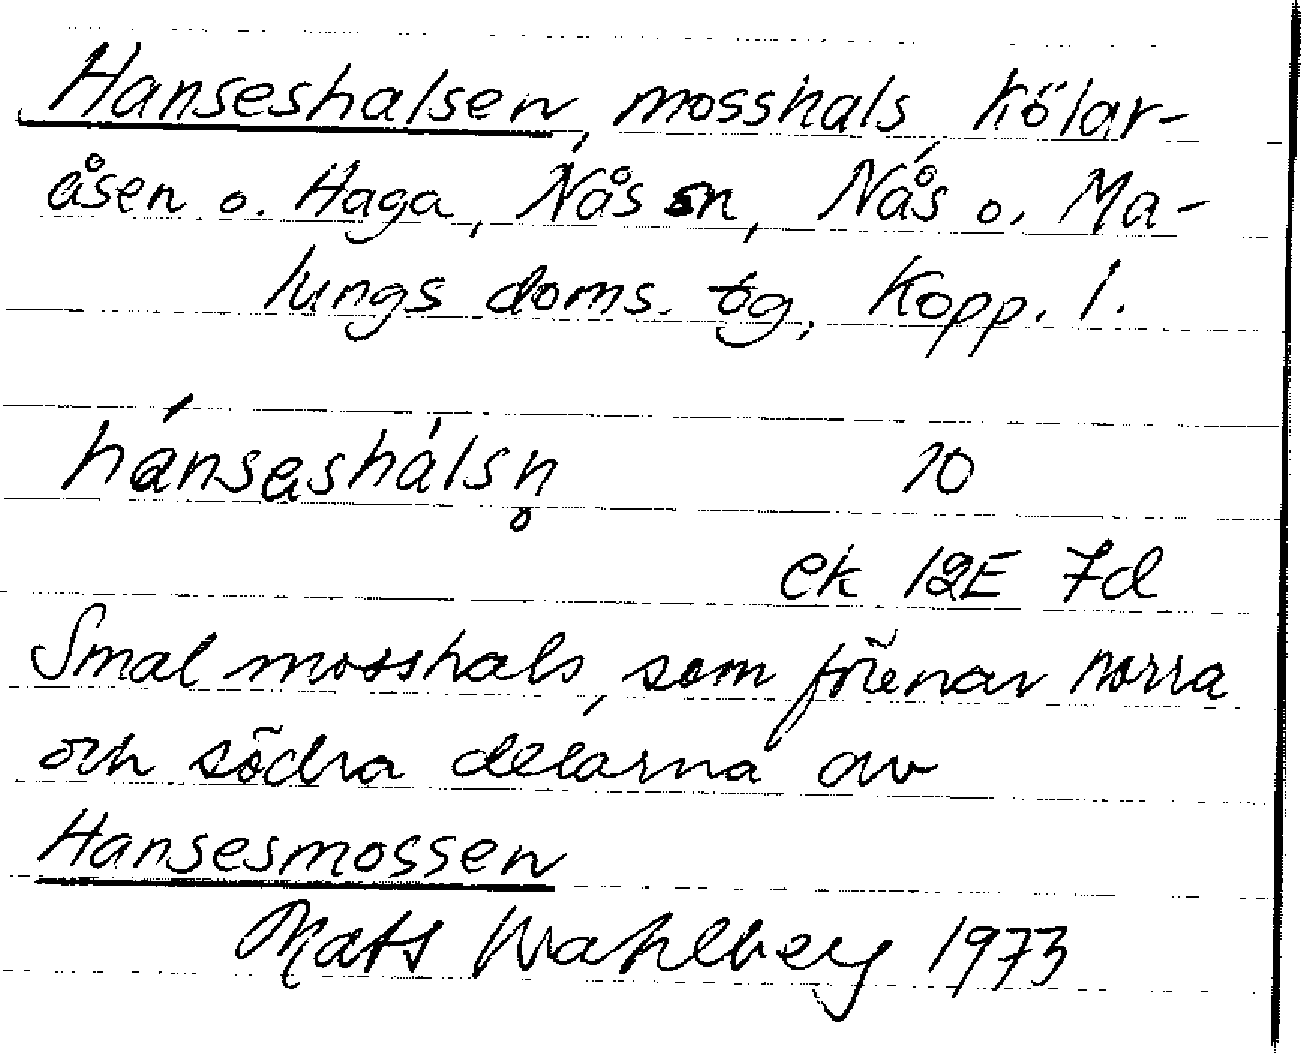 Hanseshalsen, mosshals, Kölar-
åsen o. Haga, Nås sn, Nås o. Ma-
lungs doms. tg, Kopp. l.
hánsəshálsn̥ 10
ek 12E 7d
Smal mosshals, som förenar norra
och södra delarna av
Hansesmossen
Mats Wahlberg 1973